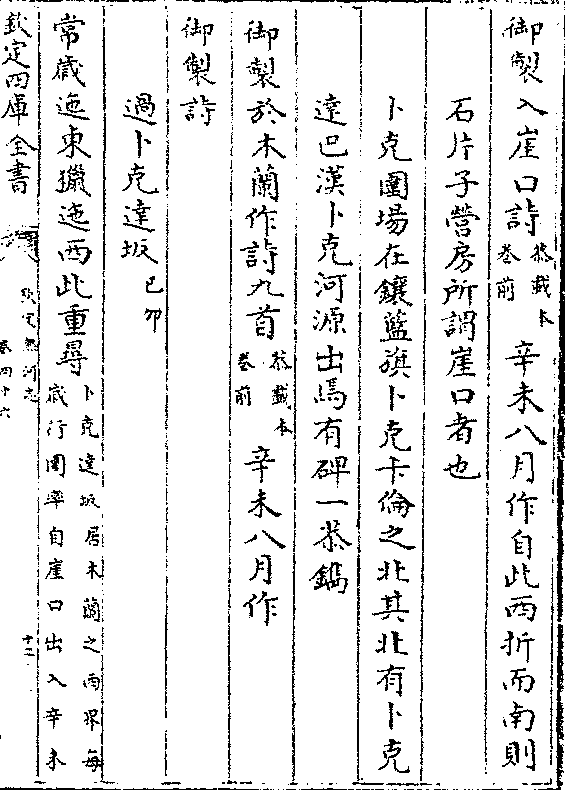 御製入崖口詩恭載本卷前辛未八月作自此西折而南則
石片子營房所謂崖口者也
卜克圍場在鑲藍旗卜克卡倫之北其北有卜克
達巴漢卜克河源出焉有碑一恭鐫
御製於木蘭作詩九首恭載本卷前辛未八月作
御製詩
過卜克達坂己卯
常歲迤東獵迤西此重尋卜克達坂居木蘭之西界每歲行圍率自崖口出入辛未
欽定四庫全書
欽定熱河志
卷四十六
十二